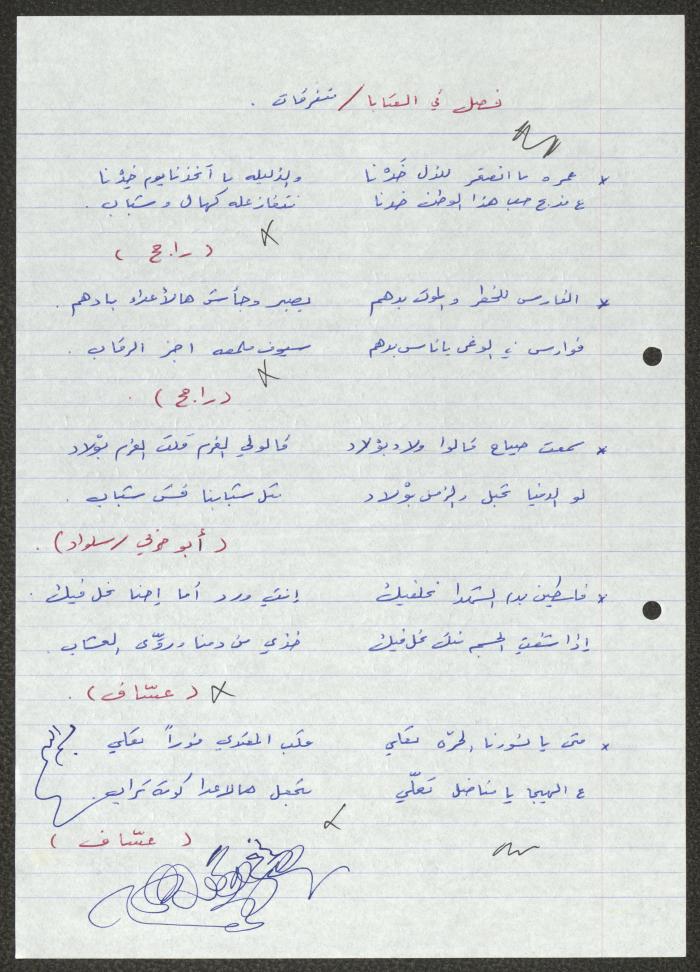 فصل في العتابا / متفرقات .
* عمره ما انصقر للذل خدنا والذليله ما آخذنا يوم خدنا
ع مذبح حب هذا الوطن خدنا نتفازعله كهال وشباب .
( راجح )
* الفارس للخطر والموت يدهم يصير وجأش هالأعداء يادهم .
فوارس في الوغى ياناس يدهم سيوف ملمعه اجز الرقاب .
( راجح ) .
* سمعت صياح قالوا ولاد بولاد قالولي العزم قلت العزم بولاد
لو الدنيا تحبل والزمن بولاد مثل شبابنا فش شباب .
( أبو خزقي / سلواد ) .
* فلسطين بدم الشهدا نحلفيك إنتي ورد أما إحنا نحل فيك .
إذا شفتي الجسم منك نحل فيك خذي من دمنا وروّي العشاب .
( عسّاف ) .
* متى يا نسورنا الحرّه تعلي قلب المعتدي فوراً تعلي
ع الهيجا يا مناضل تعلّي تنجبل هالاعدا كومة تراب .
( عسّاف )